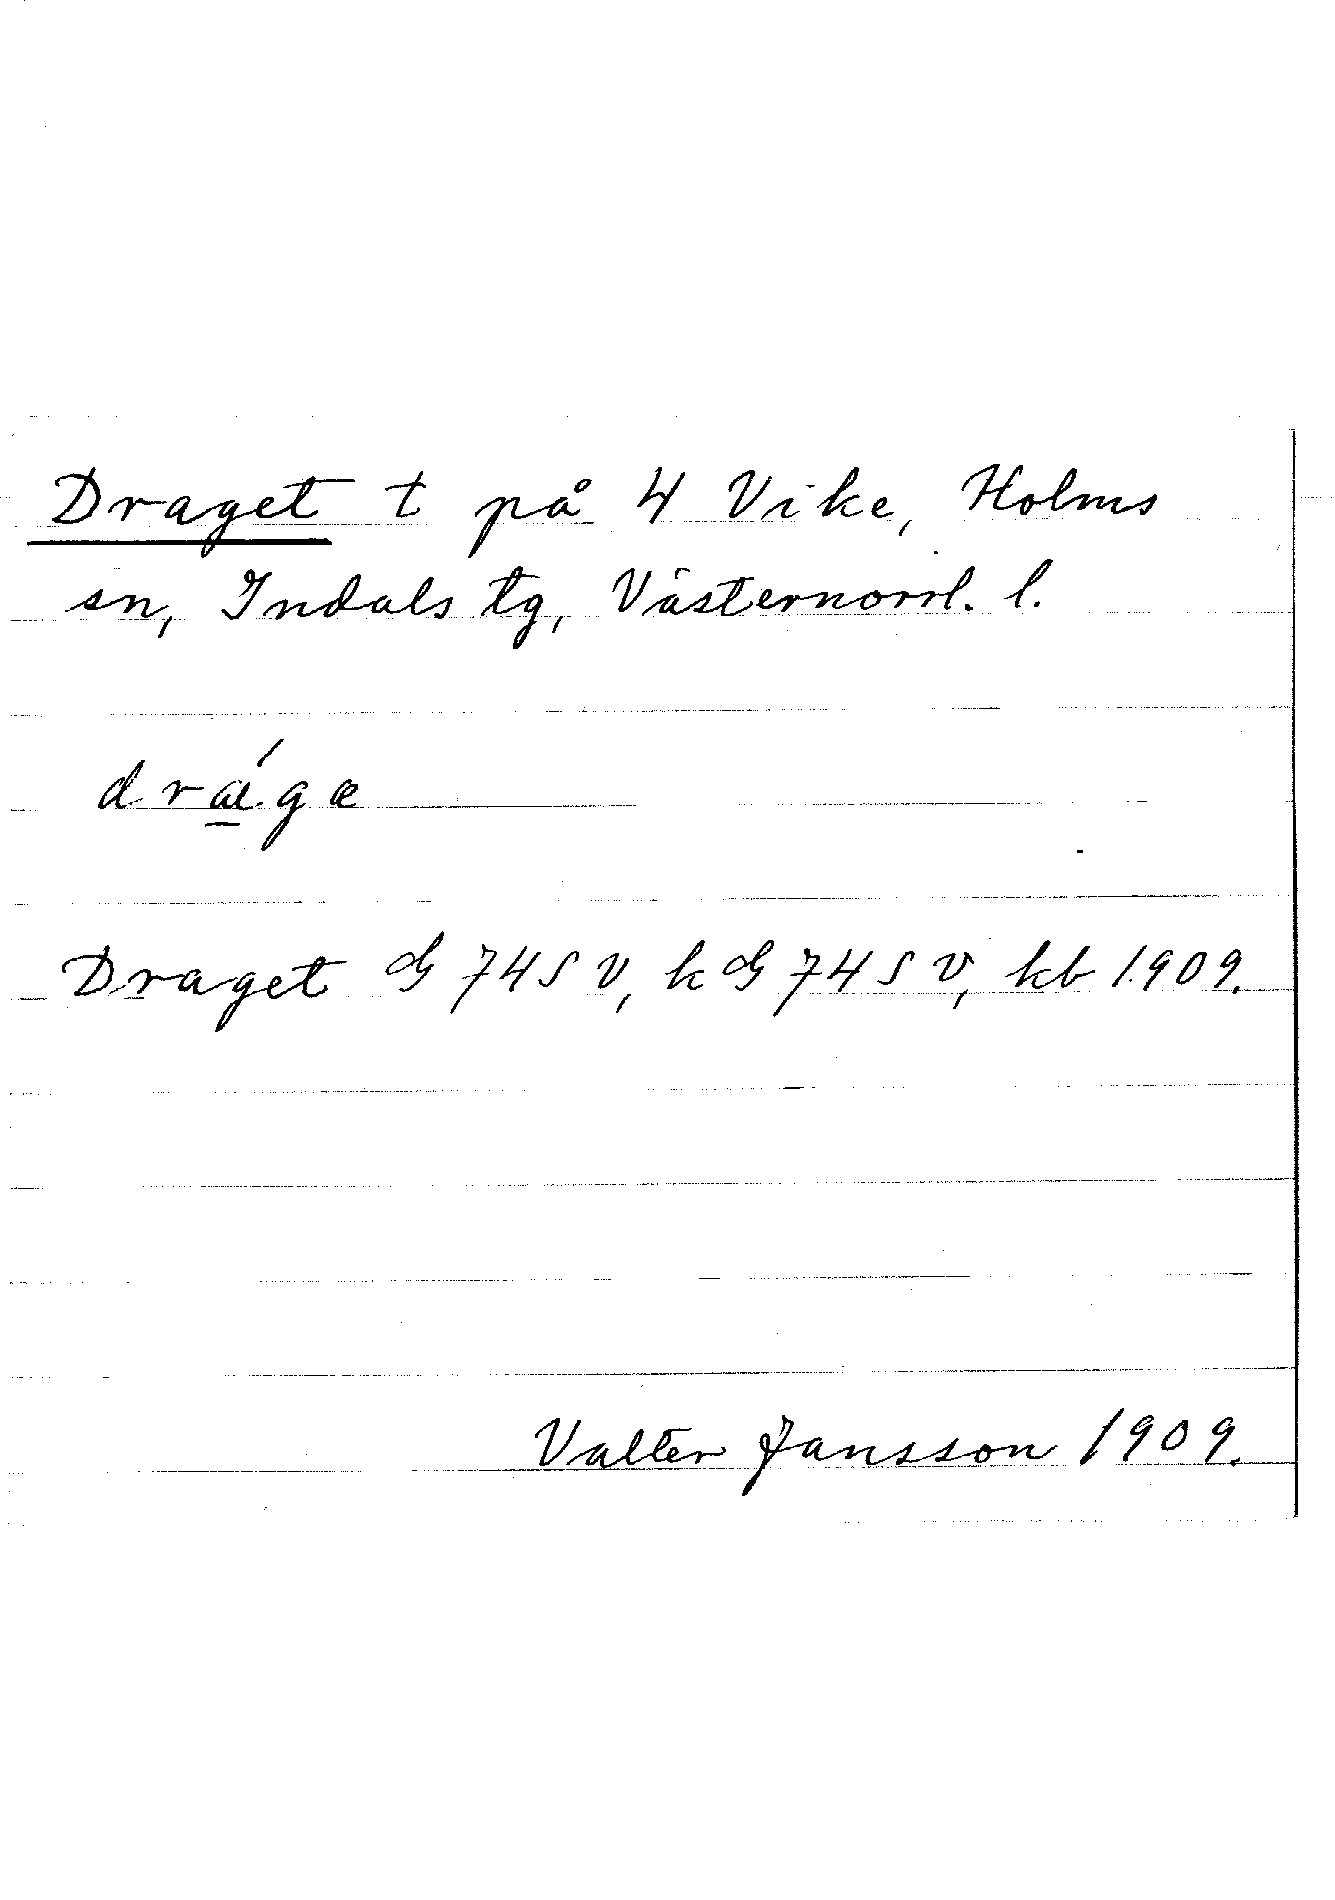 Draget t på 4 Vike, Holms
sn, Indals tg, Västernorrl. l.
drǽ̱gæ
Draget G 74 S V, k G 74 S V, kb 1909.
Valter Jansson 1909.